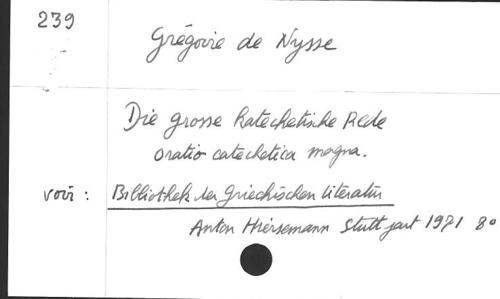 239
Grégoire de Nysse
Die grosse Katechetische Rede
oratio catechetica magna.
voir : Bibliothek der Griechischen Literatur
Anton Hiersemann Stuttgart 1971 8°